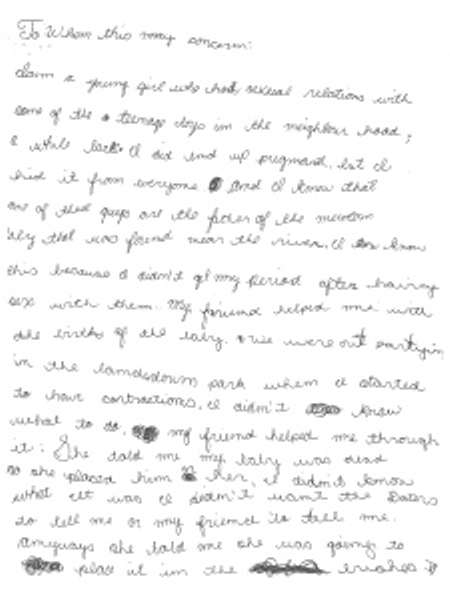 To Whom this may concern:
I am a young girl who had sexual relations with
some of the teenage boys in the neighbour hood;
a while back I did end up pregnant, but I
hid it from everyone and I know that
one of that guys are the father of the newborn
baby that was found near the river. I know
this because I didn't get my period after having
sex with them. My friend helped me with
the births of the baby. we were out partying
in the lansdowm park when I started
to have contractions, I didn't know
what to do, my friend helped me through
it: She told me my baby was dead
so she placed him her, I didn't know
what it was I didn't want the
to tell me or my friend to tell me.
Anyways she told me she was going to
place it in the brushes